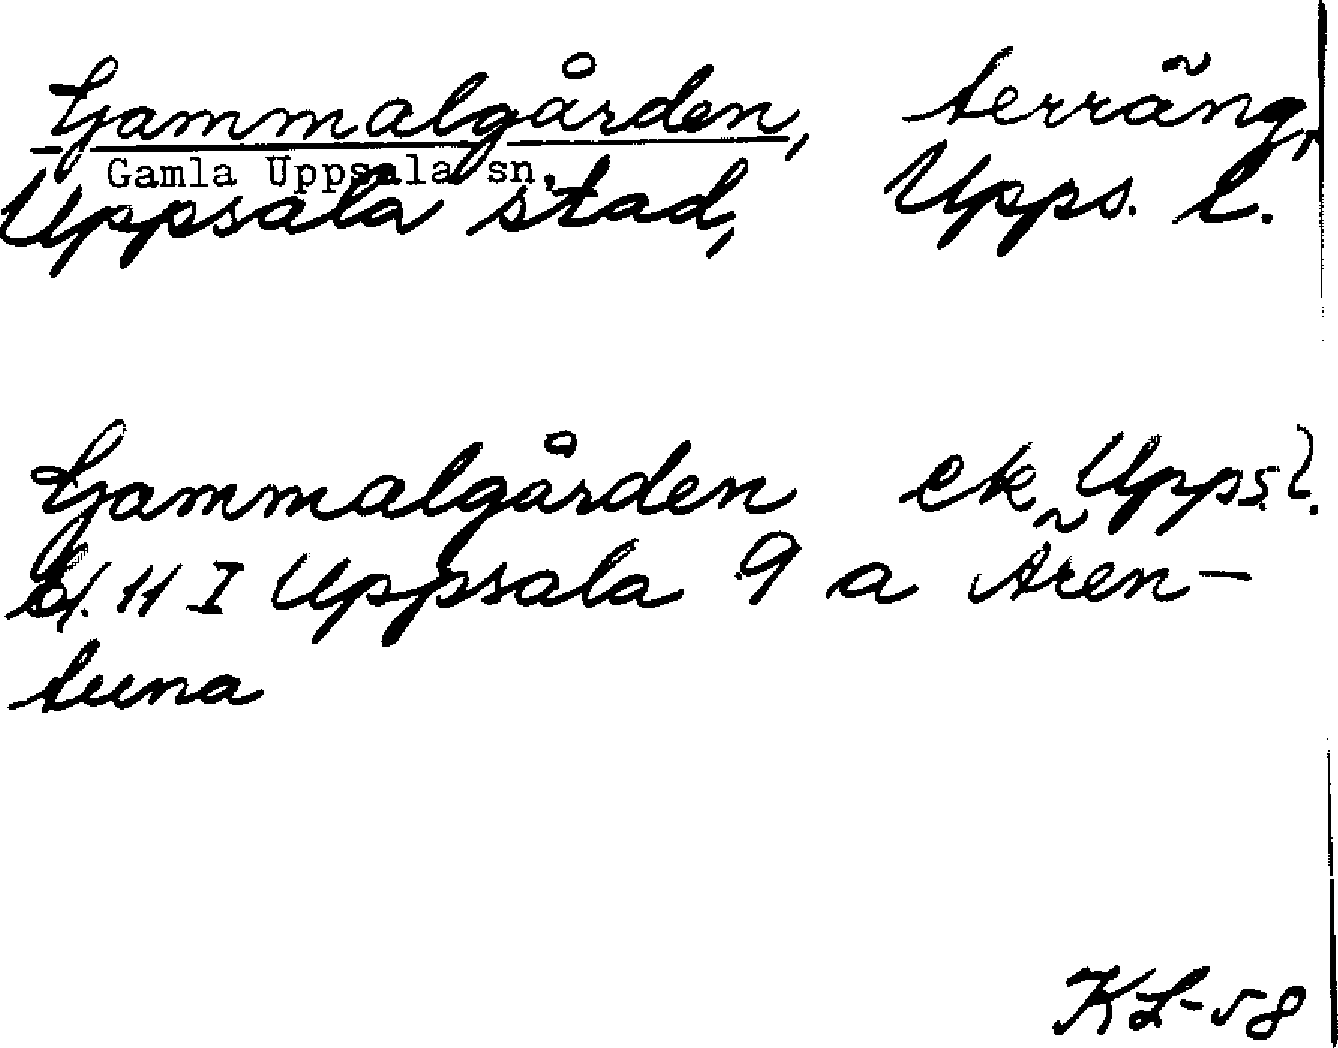 Gammalgården, terräng,
Gamla Uppsala sn,
Uppsala stad, Upps. l.
Gammalgården ek Upps.l.
bl. 11 I Uppsala 9 a Ären-
tuna
KL-58